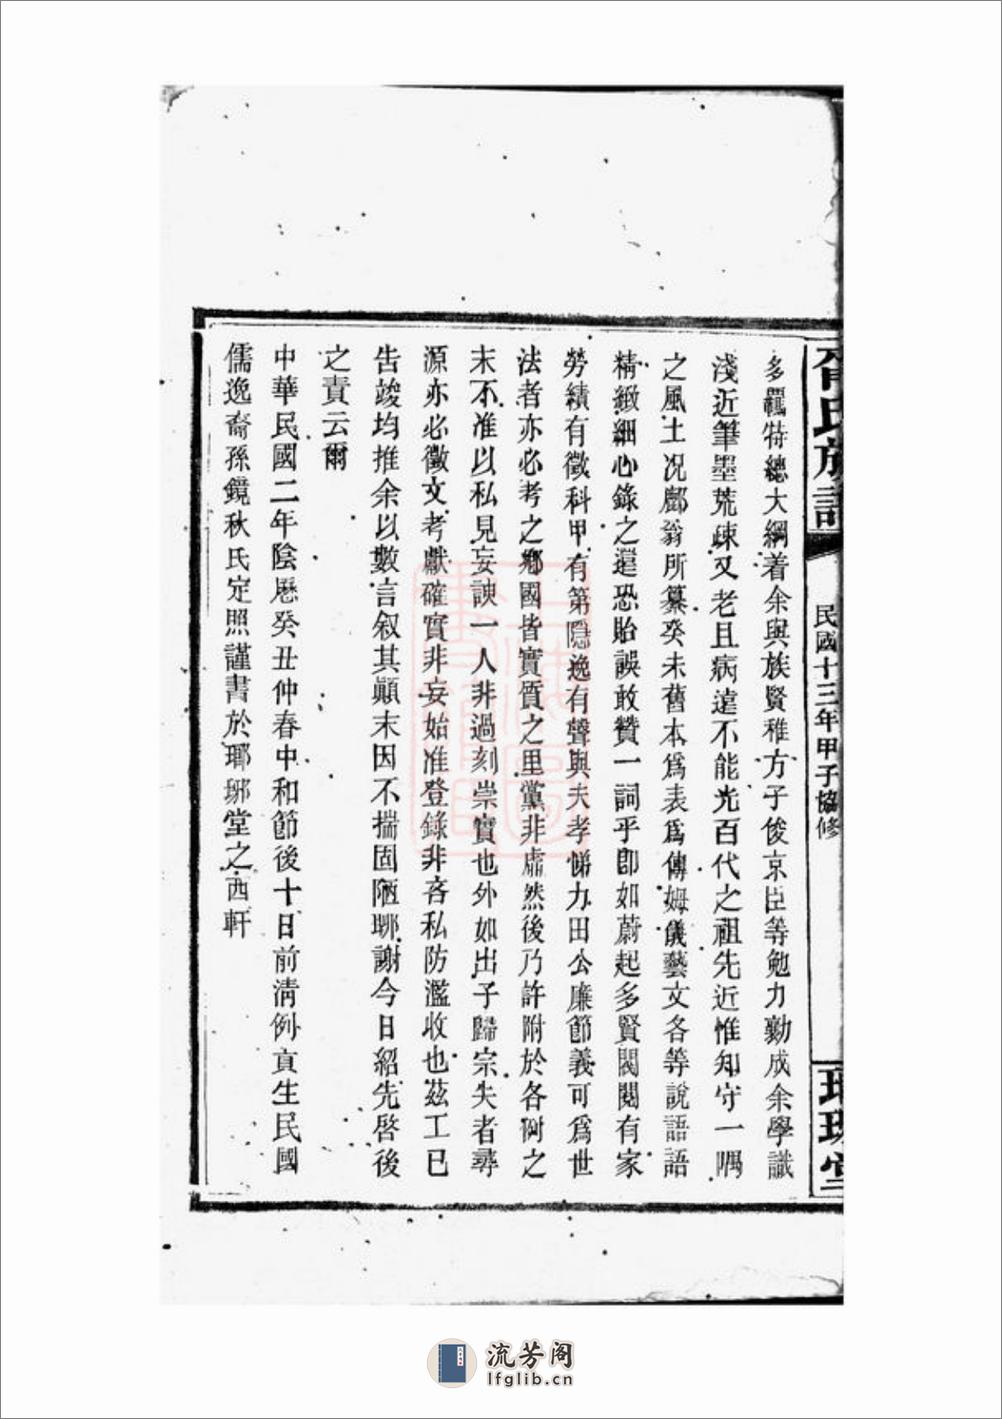 氏族譜
民國十三年甲子協修
堂
多羈特總大綱着余與族賢稚方子俊京臣等勉力勷成余學識
淺近筆墨荒疎又老且病遠不能光百代之祖先近惟知守一隅
之風土况鄺翁所纂癸未舊本爲表爲傳姆儀藝文各等說語語
精緻細心錄之還恐貽誤敢贊一詞乎卽如蔚起多賢閥閱有家
勞績有徵科甲有第隱逸有聲與夫孝悌力田公廉節義可爲世
法者亦必考之鄕國皆實質之里黨非虛然後乃許附於各例之
末不准以私見妄諛一人非過刻崇實也外如出子歸宗失者尋
源亦必徵文考獻確實非妄始准登錄非吝私防濫收也茲工已
告竣均推余以數言叙其顚末因不揣固陋聊謝今日紹先啓後
之責云爾
中華民國二年陰厯癸丑仲春中和節後十日前淸例貢生民國
儒逸裔孫鏡秋氏定照謹書於瑯琊堂之西軒
流芳阁
lfglib.cn